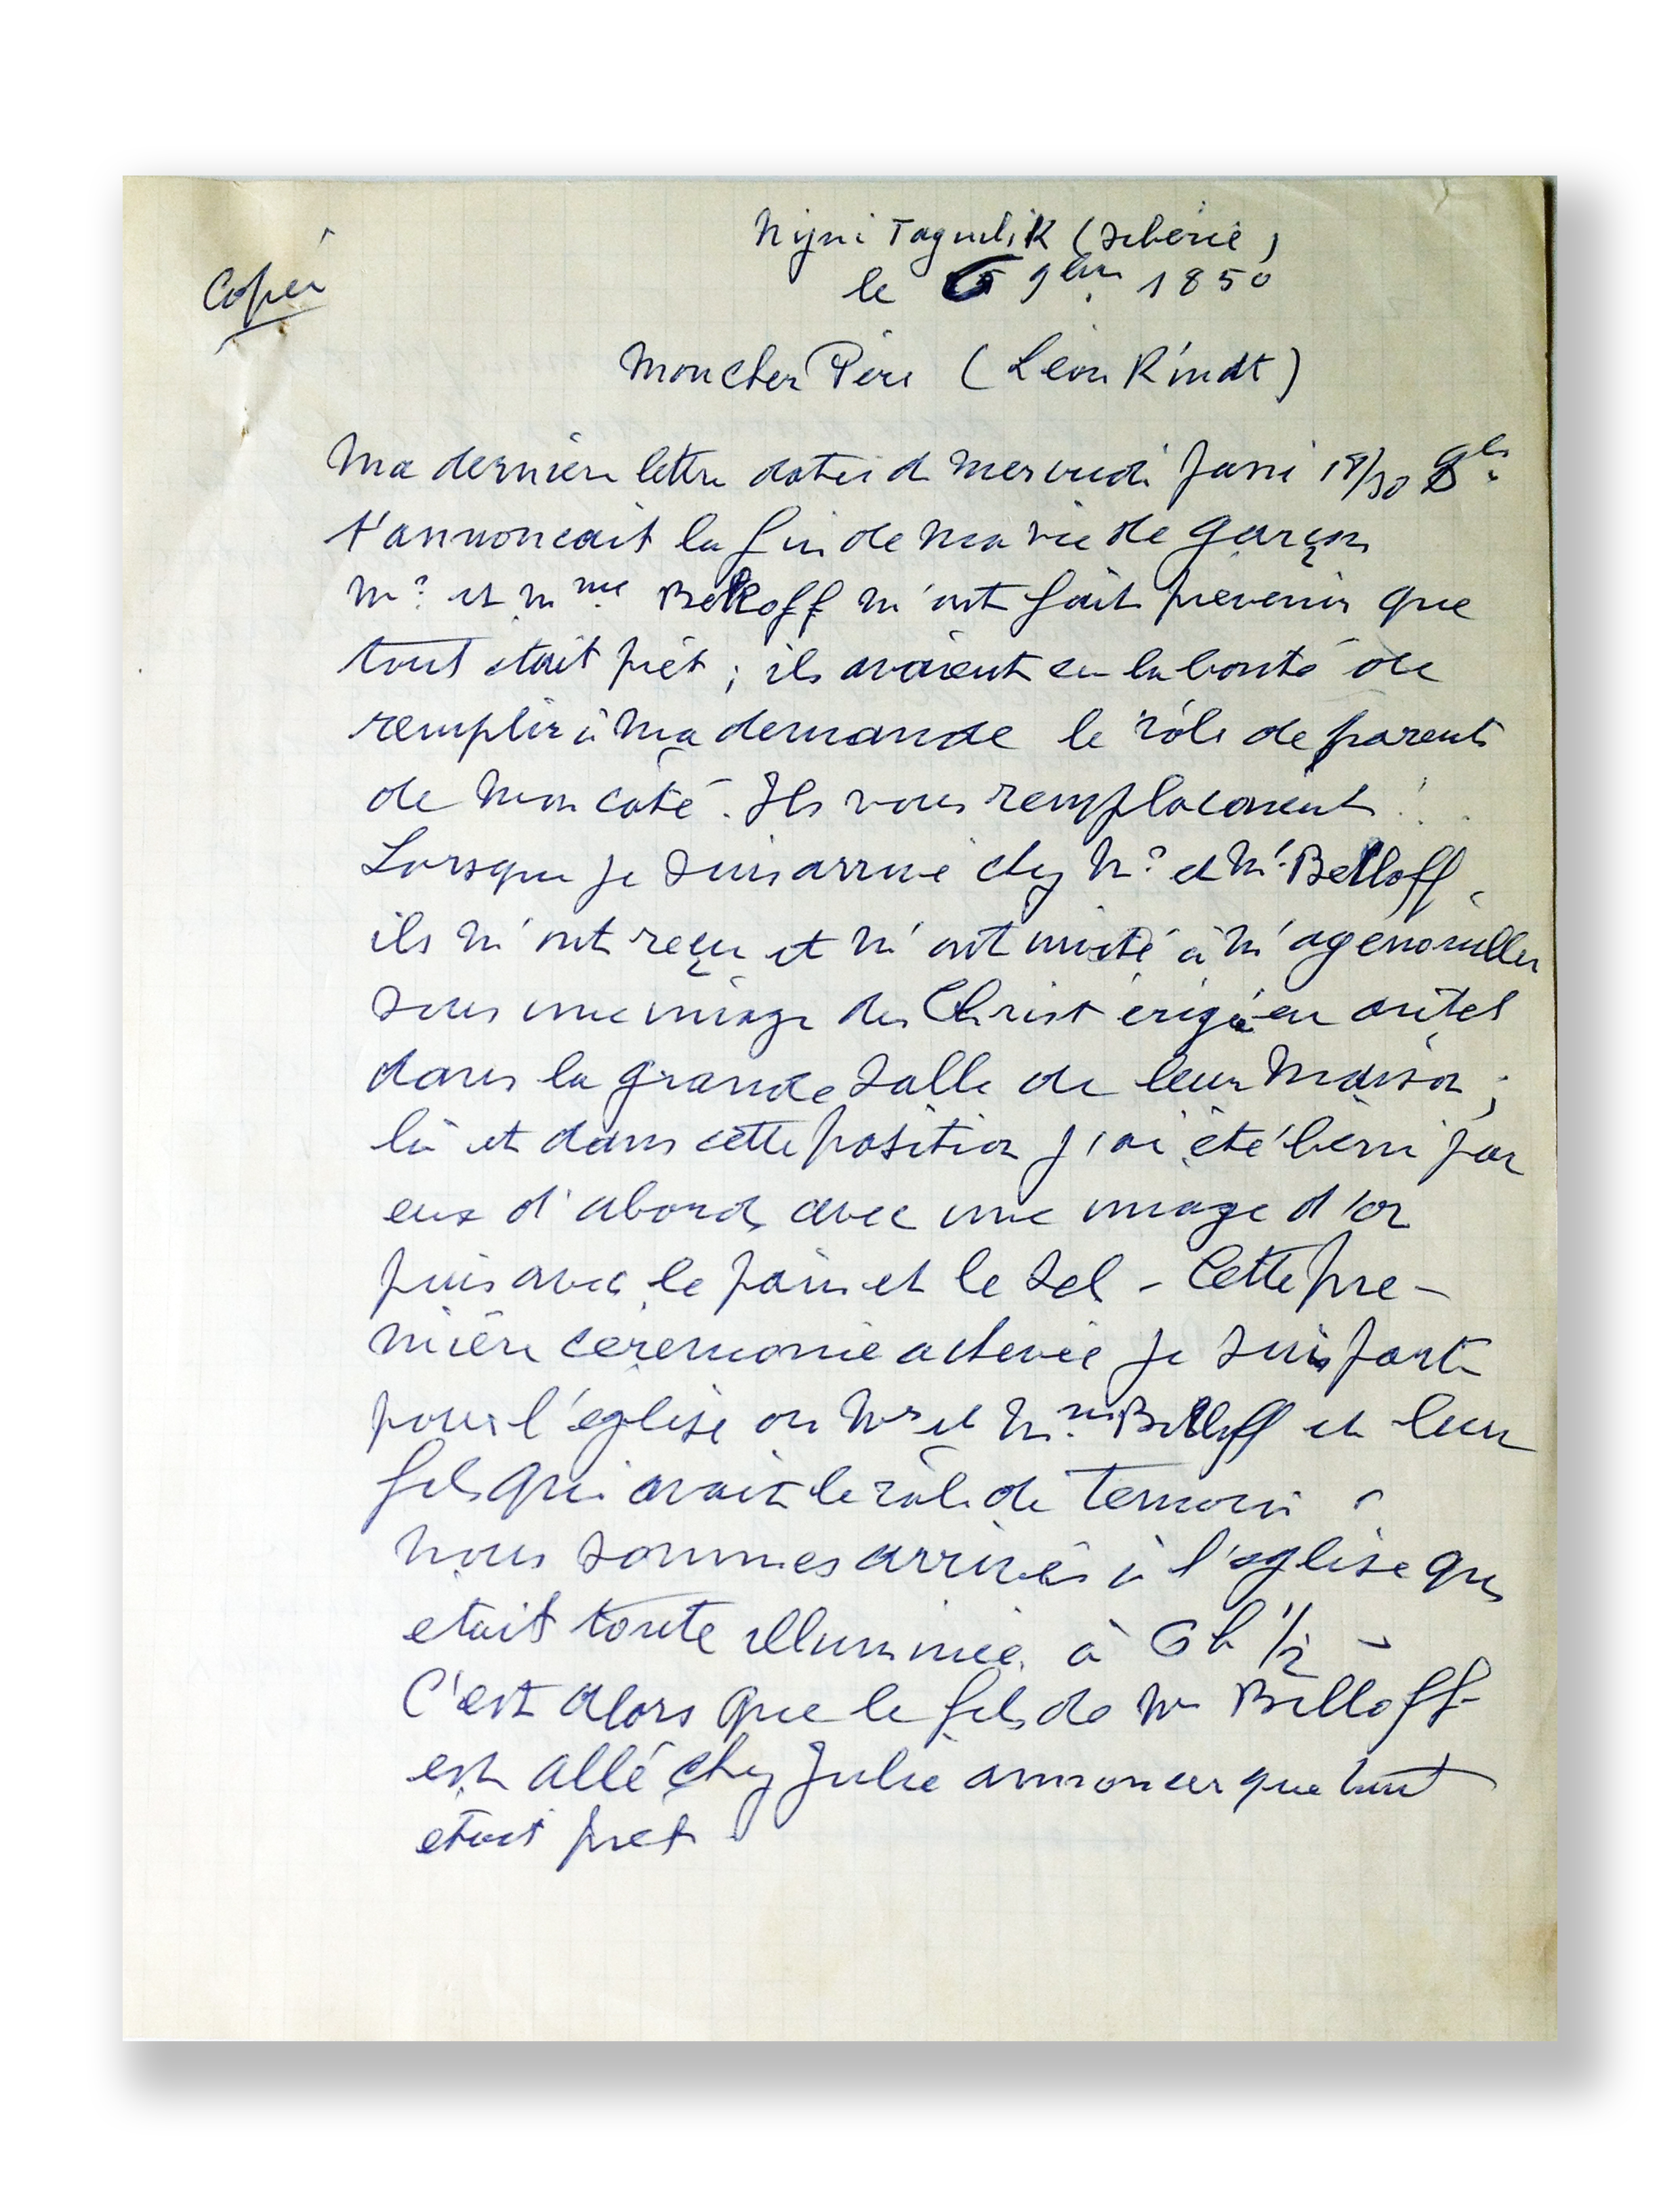 Nijni Taguilik (Sibérie)
Copié
le 6 9bre 1850
Mon cher Père (Léon Rindt)
Ma dernière lettre datée de Mercredi passé 18/30 8bre
t'annoncait la fin de ma vie de garçon
Mr et Mme Belloff m'ont fait prévenir que
tout était prêt ; ils avaient eu la bonté de
remplir à ma demande le rôle de parents
de mon côté. Ils vous remplacaient !
Lorsque je suis arrivé chez Mr et Me Belloff,
ils m'ont reçu et m'ont invité à m'agenouiller
sous une image du Christ érigée en autel
dans la grande salle de leur maison ;
là et dans cette position j'ai été béni par
eux d'abord avec une image d'or
puis avec le pain et le sel - Cette pre-
mière cérémonie achevée je suis parti
pour l'église où Mr et Mme Belloff et leur
fils qui avait le rôle de temoin
nous sommes arrivés à l'église qui
était toute illuminée à 6h 1/2 -
C'est alors que le fils de Mr Belloff
est allé chez Julie annoncer que tout
était prêt